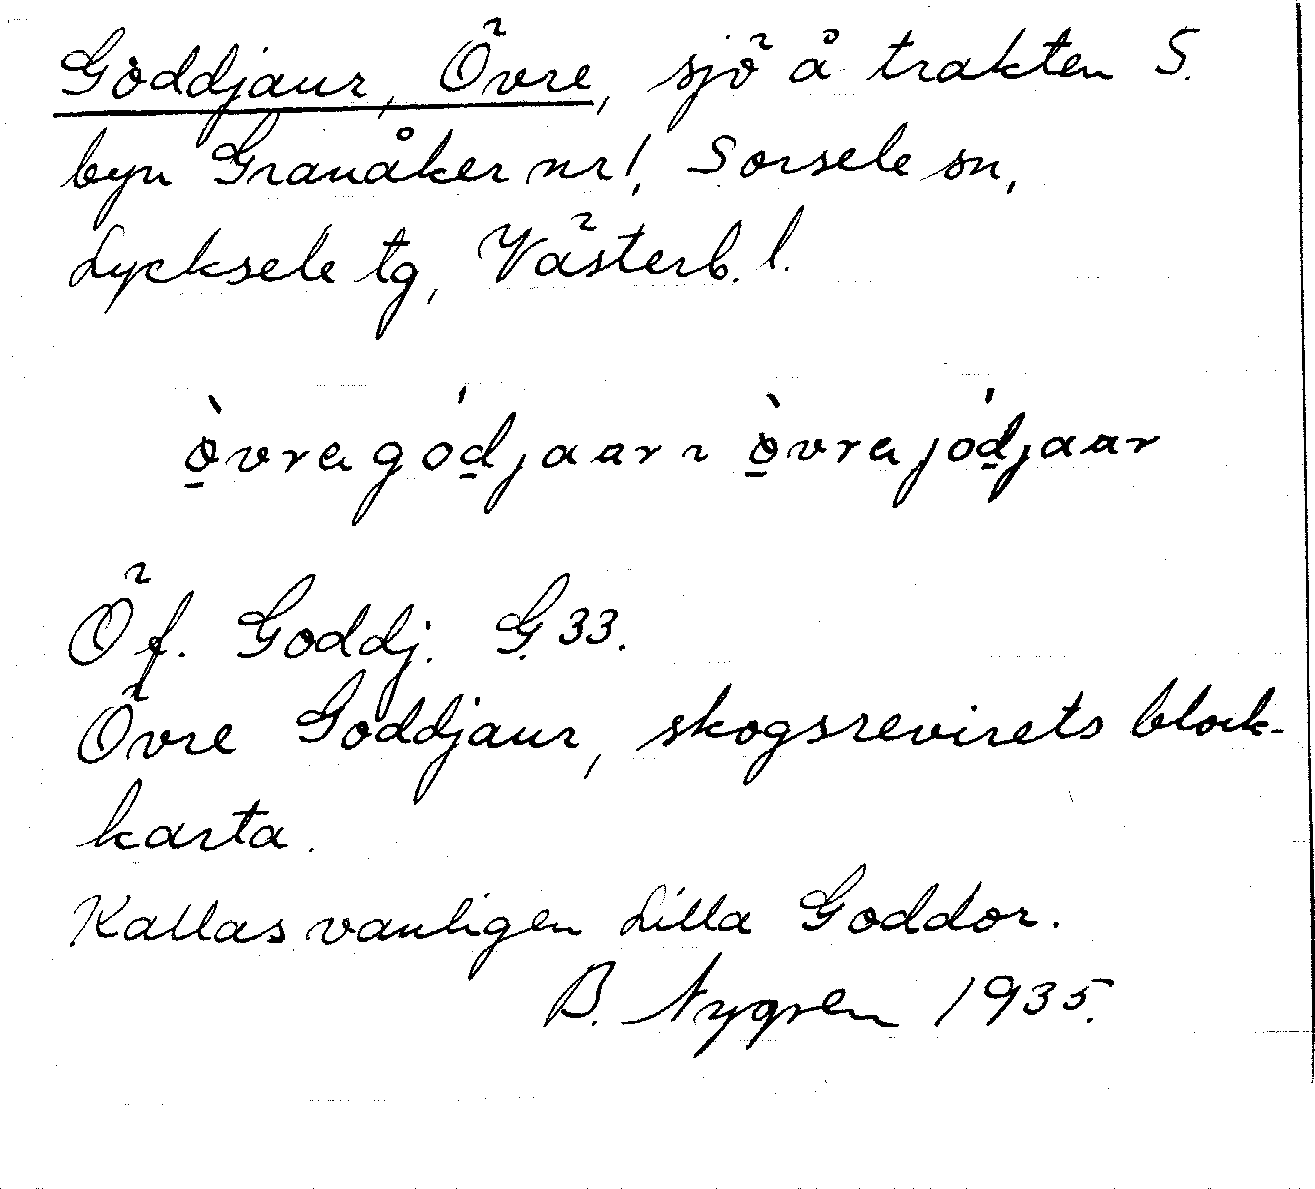 Goddjaur, Övre, sjö å trakten S.
byn Granåker nr 1, Sorsele sn,
Lycksele tg, Västerb. l.
ò̱vra gód̲jaar ~ ò̱vra jód̲jaar
Öf. Goddj. G. 33.
Övre Goddjaur, skogsrevirets block-
karta.
Kallas vanligen Lilla Goddor.
B. Nygren 1935.